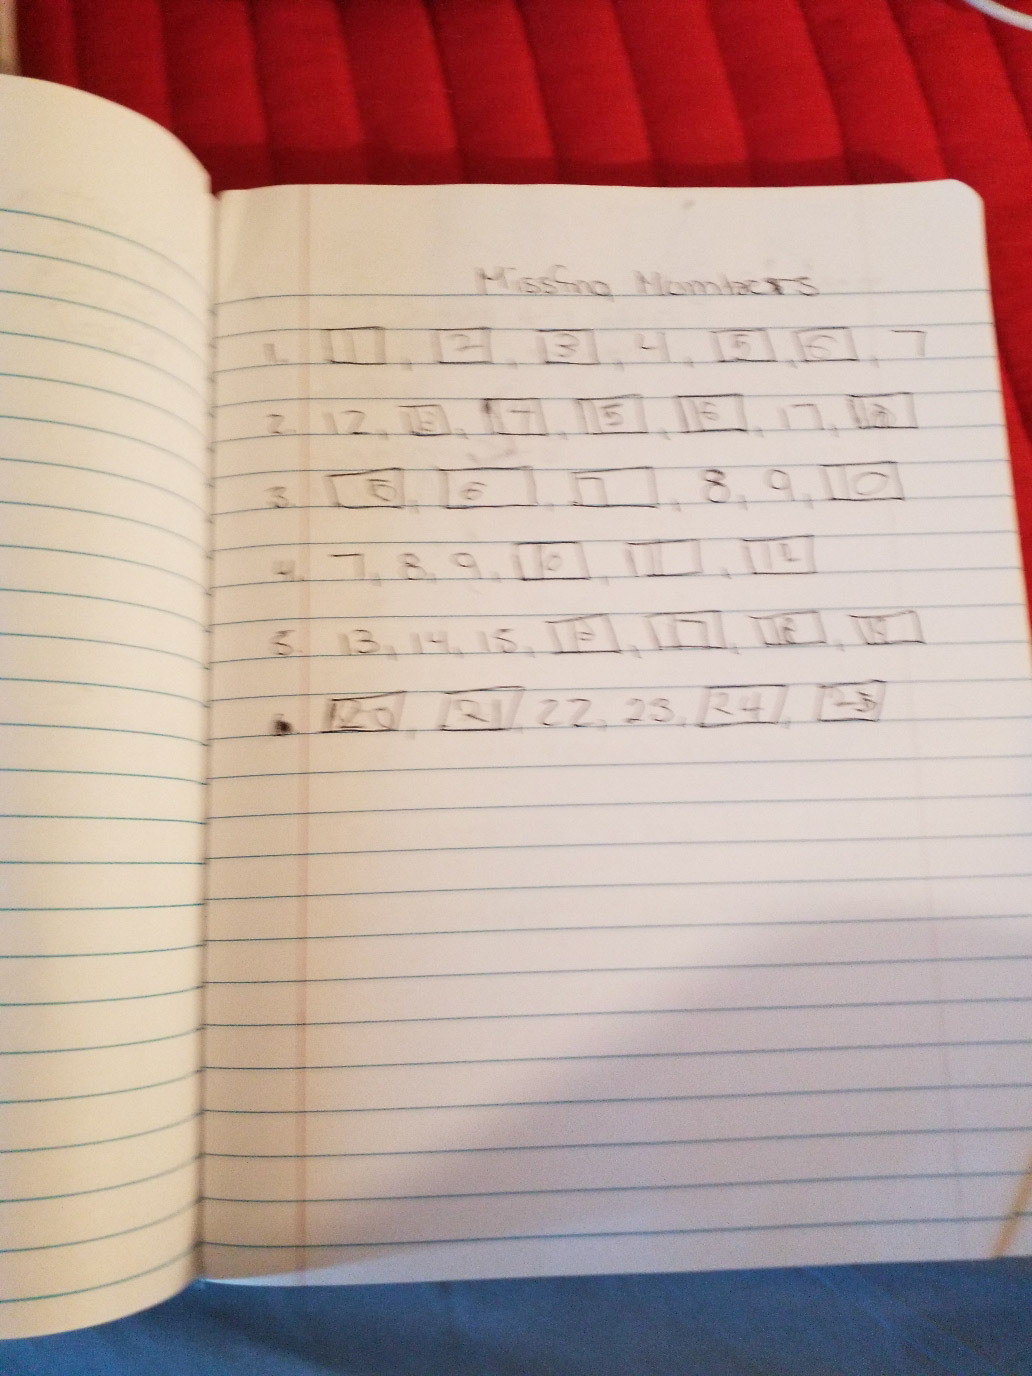 Missing Numbers
1. 1, 2, 3, 4, 5, 6, 7
2. 12, 13, 17, 15, 16, 17, 18
3. 5, 6, 7, 8, 9, 10
4. 7, 8, 9, 10, 11, 12
5. 13, 14, 15, 16, 17, 18, 19
20, 21, 22, 23, 24, 25